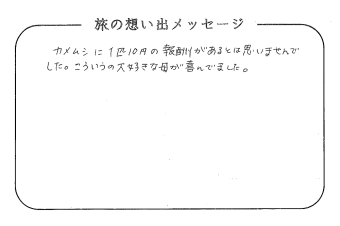 旅の想い出メッセージ
カメムシに1匹10円の報酬があるとは思いませんで
した。こういうの大好きな母が喜んでました。